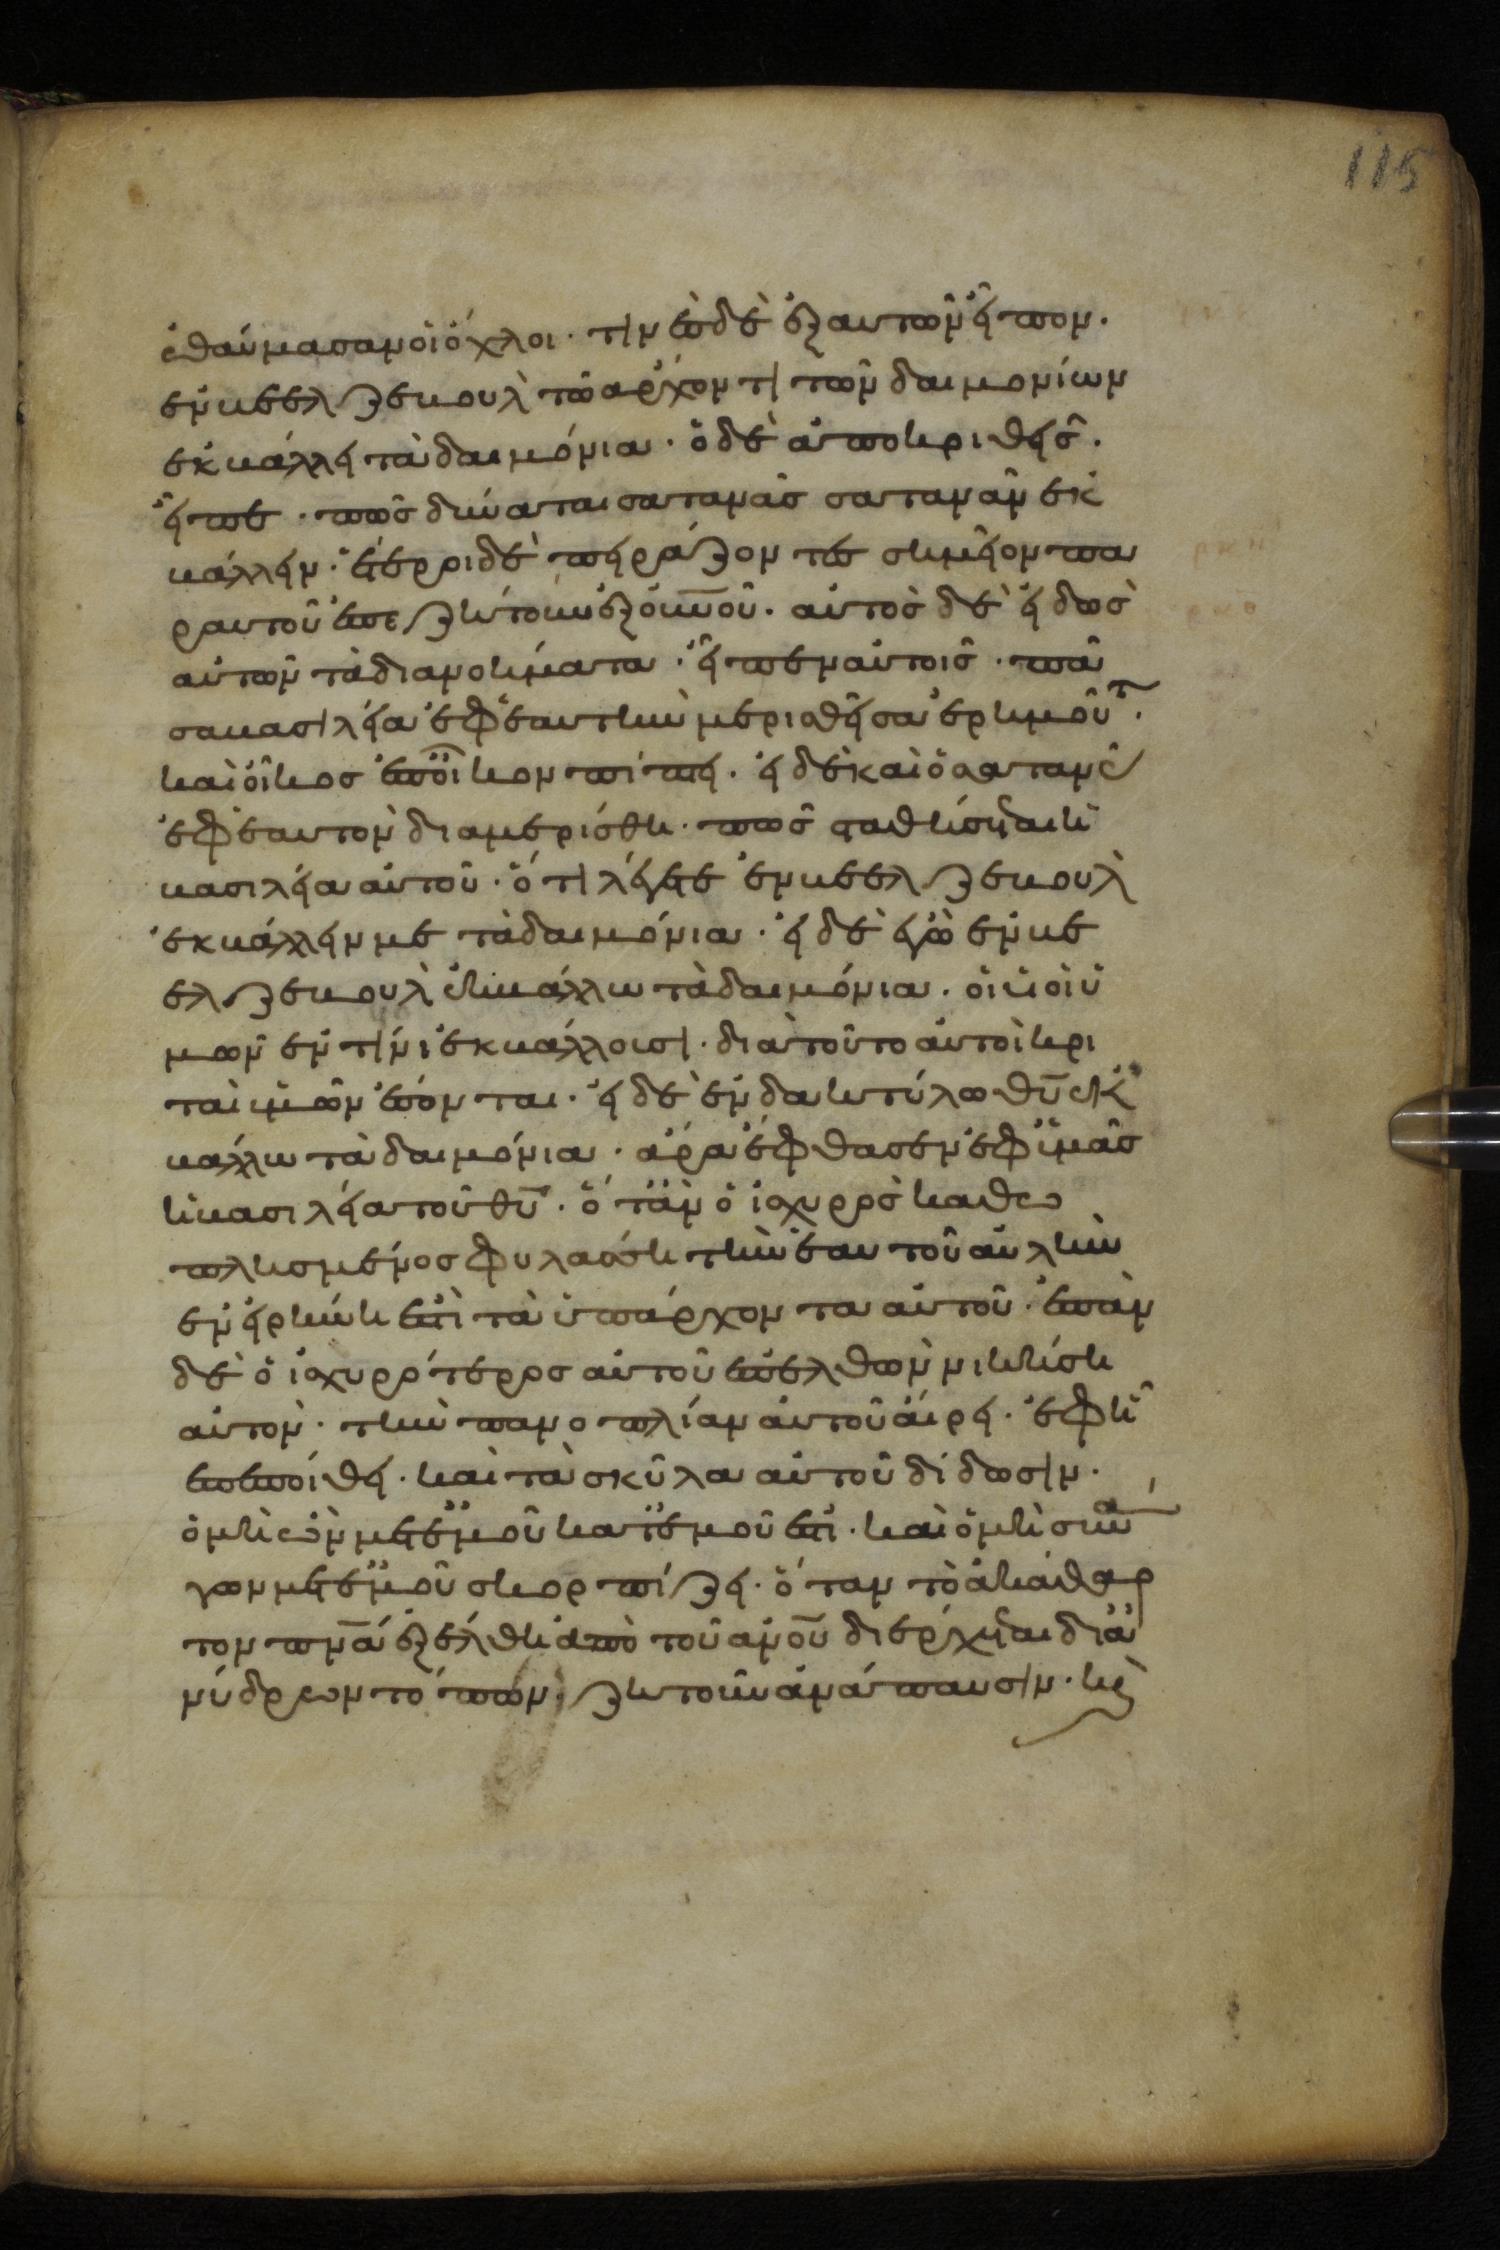 115
ἐθαύμασαν οἱ ὄχλοι· τινὲσ δὲ ἐξ αυτῶν εἶπον·
ἐν βεελζεβουλ τῶ ἄρχοντι τῶν δαιμονίων
ἐκβάλλει τὰ δαιμόνια· ὁ δὲ ἀποκριθεὶσ
εἶπε· πῶσ δύναται σατανᾶσ σαταναν ἐκ
βάλλειν· ἕτεροι δὲ πειράζοντεσ σημεῖον πα
ρ αυτοῦ ἐπεζήτουν ἐξ ουνου· αὐτὸσ δὲ εἰδὼσ
αὐτῶν τὰ διανοήματα· εἶπεν αὐτοῖσ· πᾶ
σα βασιλεία ἐφ ἑαυτὴν μερισθεῖσα ἐρημοῦτ·
καὶ οἶκοσ ἐπ οἶκον πίπτει· εἰ δὲ καὶ ὁ σατανᾶσ
ἐφ ἑαυτὸν διαμερίσθη· πῶσ σταθήσεται ἡ
βασιλεία αὐτοῦ· ὅτι λέγετε ἐν βεελζεβουλ
ἐκβάλλειν με τὰ δαιμόνια· εἰ δὲ ἐγὼ ἐν βε
ελζεβουλ ἐκβάλλω τὰ δαιμόνια· οἱ υἱοὶ ὑ
μῶν ἐν τίνι ἐκβάλλουσι· διὰ τοῦτο αὐτοὶ κρι
ταὶ ὑμῶν ἔσονται· εἰ δὲ ἐν δακτύλω θυ ἐκ
βάλλω τὰ δαιμόνια· ἄρα ἔφθασεν ἐφ ὑμᾶσ
ἡ βασιλεία τοῦ θυ· ὅταν ὁ ἰσχυρὸσ καθω
πλησμένοσ φυλάσση τὴν ἑαυτοῦ αὐλὴν
ἐν εἰρήνη ἐστὶ τὰ ὑπάρχοντα αὐτοῦ· ἐπὰν
δὲ ὁ ἰσχυρότεροσ αὐτοῦ ἐπελθὼν νικήση
αὐτὸν· τὴν πανοπλίαν αὐτοῦ αἴρει· ἐφ ἧ
ἐπεποίθει· καὶ τὰ σκῦλα αὐτοῦ δίδωσιν·
ὁ μὴ ὢν μετ ἐμοῦ κατ ἐμοῦ ἐστι· καὶ ὁ μὴ συνά
γων μετ ἐμοῦ σκορπίζει· ὅταν τὸ ἀκάθαρ
τον πνα ἐξέλθη ἀπὸ τοῦ ανου διέρχεται δι ἀ
νύδρων τόπων ζητοῦν ἀνάπαυσιν· κὲ